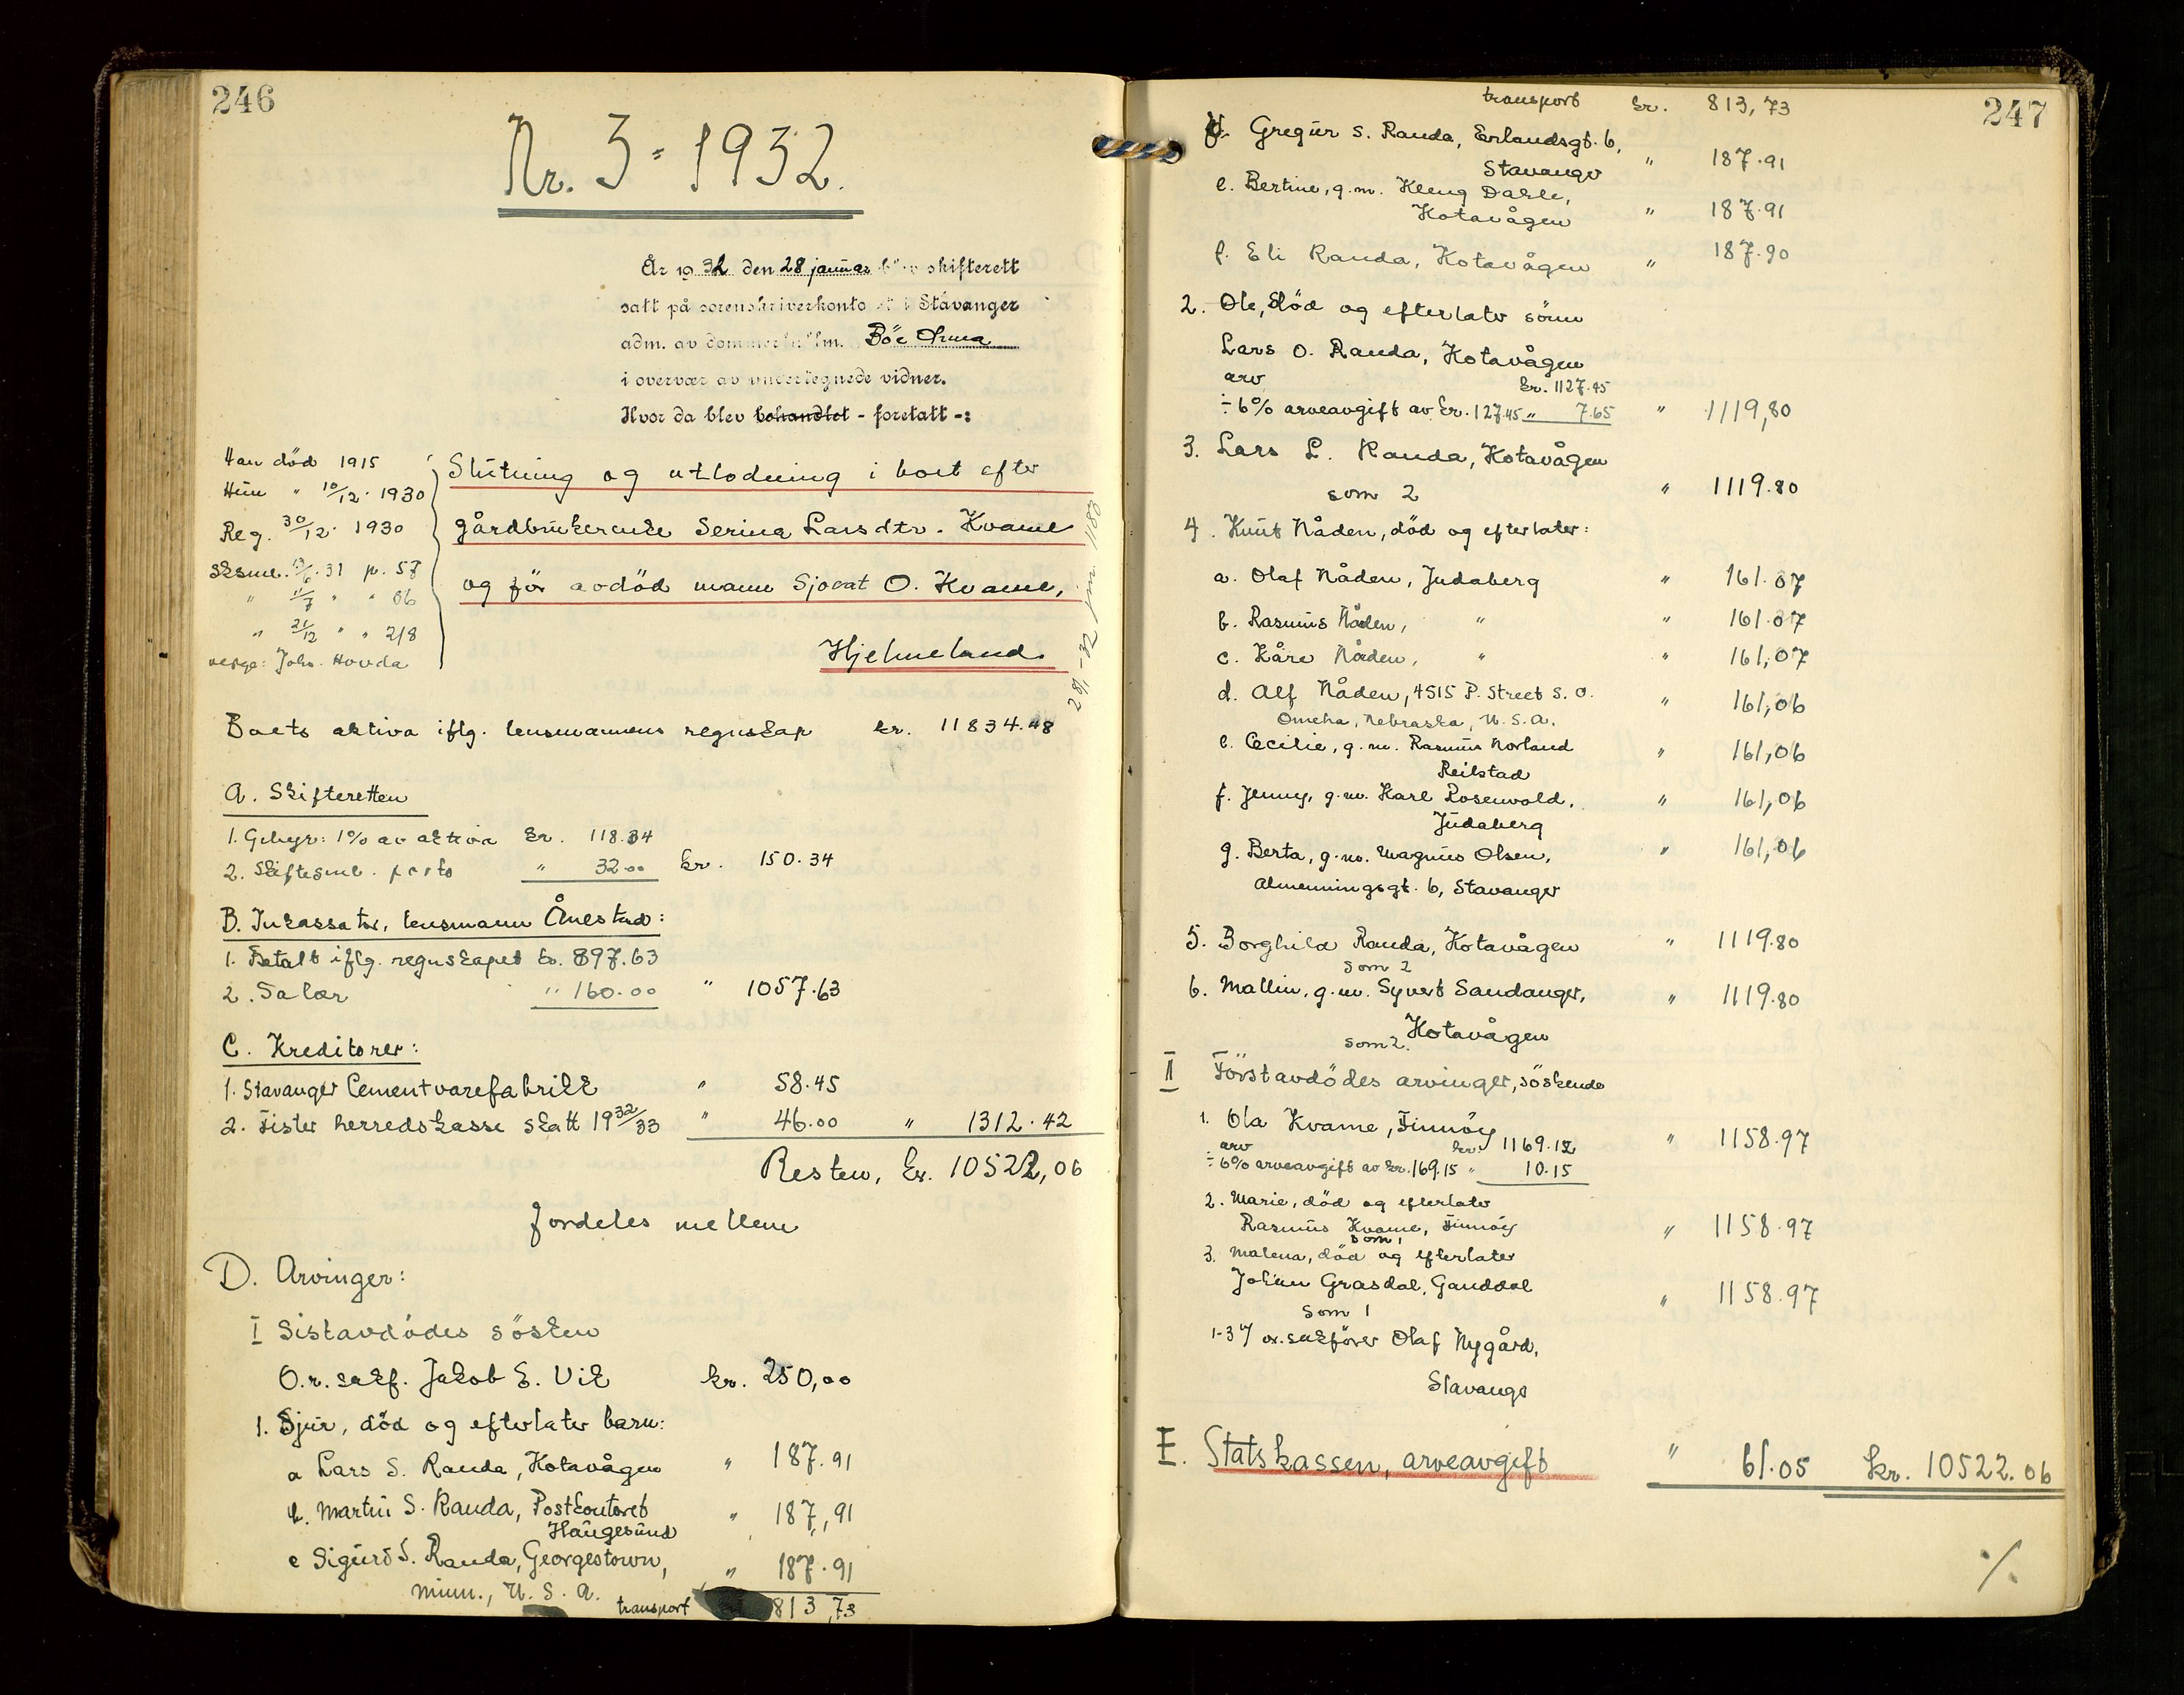 246
Nr. 3 = 1932.
År 1932 den 28 januar blev skifterett
satt på sorenskriverkontoret i Stavanger
adm. av dommerfullm. Böe
i overvær av undertegnede vidner.
Hvor da blev behandlet - foretatt -:
Han død 1915
Hun " 10/12. 1930
Reg. 30/12. 1930
Sksml. 13/6. 31 p. 57
" 11/7 " " 86
" 21/12 " " 218
verge: Johs. Hovda
Slutning og utlodning i boet efter
gårdbrukerenke Serina Larsdtr. Kvame
og før avdød mann Sjovat O. Kvame,
Hjelmeland.
28/1-32 jnr. 1188
Boets aktiva iflg. lensmannens regnskap kr. 11834.48
A. Skifteretten
1. Gebyr: 1% av aktiva kr. 118.34
2. Skiftesml. porto " 32.00 kr. 150.34
B. Inkassator, lensmann Ånestad:
1. Betalt iflg. regnskapet kr. 897.63
2. Salær " 160.00 " 1057.63
C. Kreditorer:
1. Stavanger Cementvarefabrikk " 58.45
2. Fister herredskasse skatt 1932/33 " 46.00 " 1312.42
Resten, kr. 10522,06
fordeles mellem
D. Arvinger:
I Sistavdödes sösken
O.r.sakf. Jakob E. Vik kr. 250,00
1. Sjur, död og efterlater barn:
a Lars S. Randa, Hotavågen " 187.91
b. Martin S. Randa, Postkontoret
Haugesund " 187,91
c Sigurd S. Randa, Georgestown,
Minn., U.S.A. " 187.91
transport 813,73
247
transport kr. 813,73
d. Gregur S. Randa, Erlandsgt. 6,
Stavanger " 187.91
e. Bertine, g.m. Kleng Dahle,
Hotavågen " 187.91
f. Eli Randa, Hotavågen " 187.90
2. Ole, död og efterlater sönn
Lars O. Randa, Hotavågen
arv kr. 1127.45
÷ 6% arveavgift av kr. 127.45 " 7.65 " 1119,80
3. Lars L. Randa, Hotavågen
som 2 " 1119.80
4. Knut Nåden, död og efterlater:
a. Olaf Nåden, Judaberg " 161.07
b. Rasmus Nåden, " " 161.07
c. Kåre Nåden, " " 161,07
d. Alf Nåden, 4515 P. Street S.O.
Omeha, Nebraska, U.S.A. " 161,06
e. Cecilie, g.m. Rasmus Norland
Reilstad " 161,06
f. Jenny, g.m. Karl Rosenvold,
Judaberg " 161,06
g. Berta, g.m. Magnus Olsen,
Almenningsgt. 6, Stavanger " 161,06
5. Borghild Randa, Hotavågen " 1119.80
som 2
6. Mallin, g.m. Syvert Sandanger, " 1119.80
Hotavågen
som 2.
II Förstavdödes arvinger, söskende
1. Ola Kvame, Finnöy " 1158.97
arv kr. 1169.12
÷ 6% arveavgift av kr. 169.15 " 10.15
2. Marie, död og efterlater
Rasmus Kvame, Finnöy " 1158.97
som 1
3. Malena, död og efterlater
Johan Grasdal, Ganddal " 1158.97
som 1
1-3 v/ o.r.sakförer Olaf Nygård,
Stavanger
E. Statskassen, arveavgift " 61.05 kr. 10522.06
./.